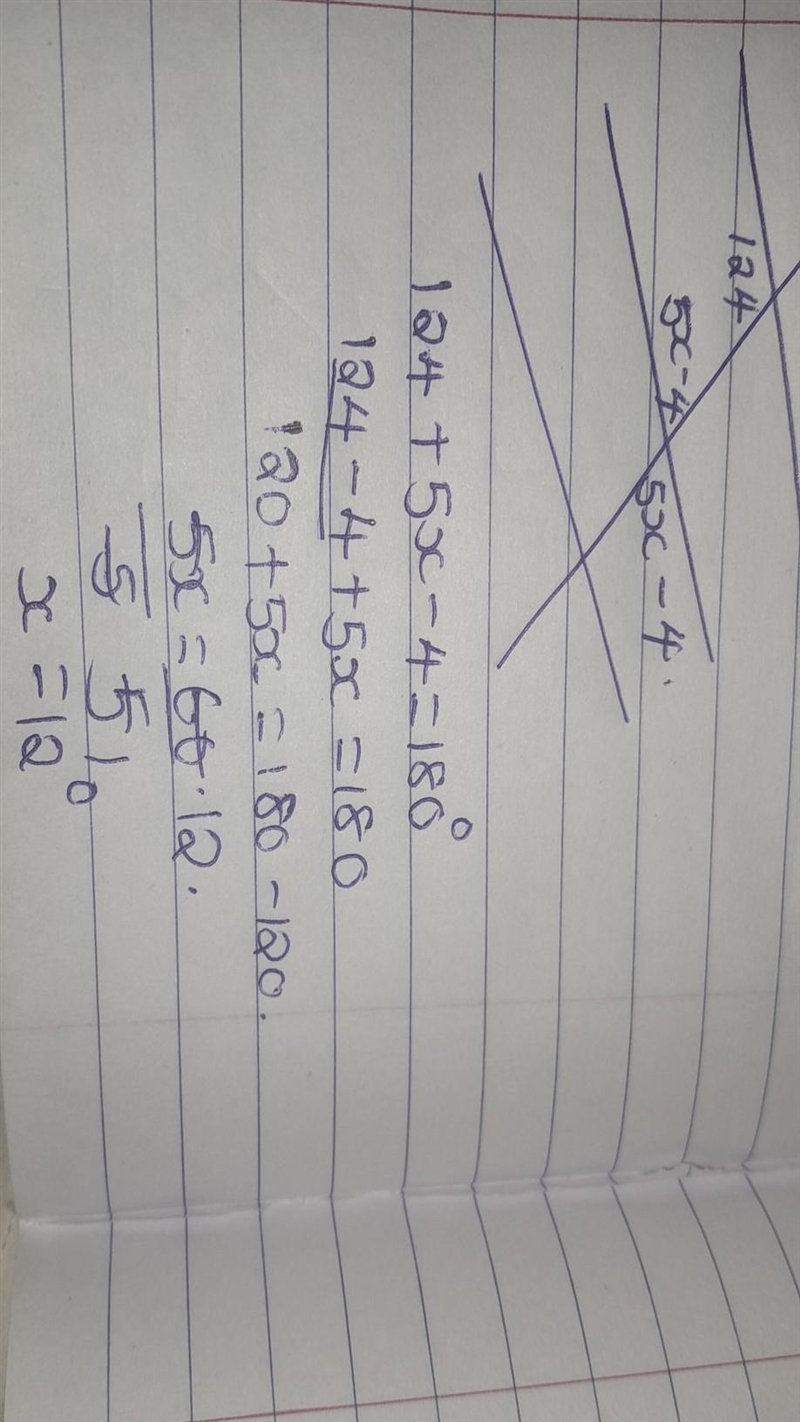 124
5x-4
5x-4.
124+5x-4=180°
124-4+5x=180
120+5x=180-120.
5x=60.12.
5 51
x=12°